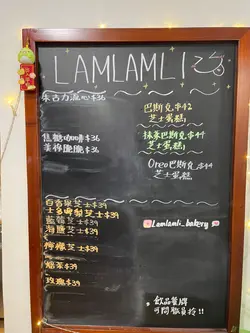 LAMLAMLI
朱古力流心$36
焦糖咖啡$36
美祿脆脆$36
百香果芝士$39
士多啤梨芝士$39
藍莓芝士$39
海鹽芝士$39
檸檬芝士$39
綠茶$39
玫瑰$39
巴斯克$42
芝士蛋糕
抹茶巴斯克$44
芝士蛋糕
Oreo巴斯克$44
芝士蛋糕
Lamlamli_bakery
飲品餐牌
可問職員拎!!